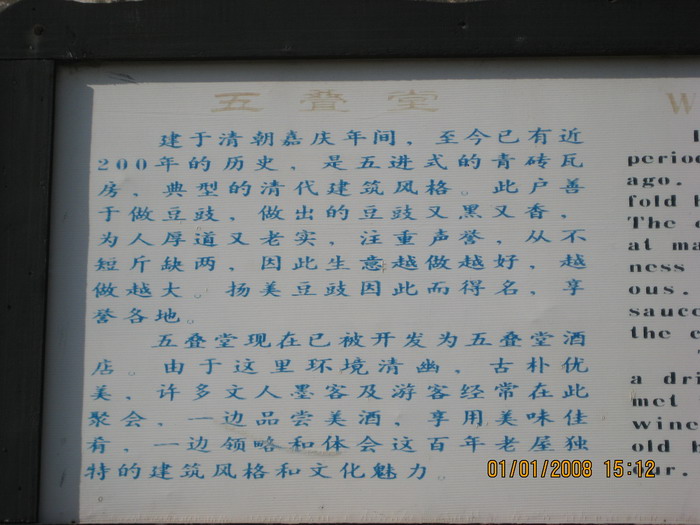 五叠堂
建于清朝嘉庆年间，至今已有近
200年的历史，是五进式的青砖瓦
房，典型的清代建筑风格。此户善
于做豆豉，做出的豆豉又黑又香，
为人厚道又老实，注重声誉，从不
短斤缺两，因此生意越做越好，越
做越大。扬美豆豉因此而得名，享
誉各地。
五叠堂现在已被开发为五叠堂酒
店。由于这里环境清幽，古朴优
美，许多文人墨客及游客经常在此
聚会，一边品尝美酒，享用美味佳
肴，一边领略和体会这百年老屋独
特的建筑风格和文化魅力。
W
period
ago.
fold h
The
at ma
ness
ous.
sauce
the c
a dri
met
wine
old h
our.
01/01/2008 15:12